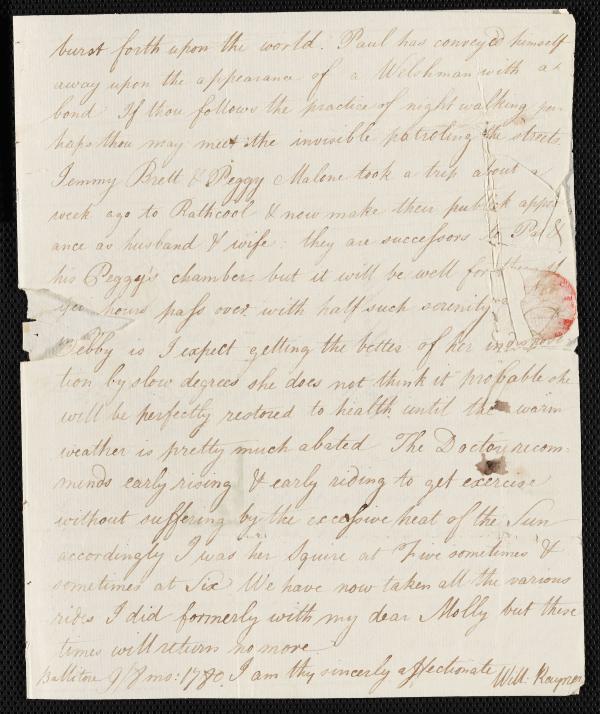 burst forth upon the world. Paul has convey'd himself
away upon the appearance of a Welshman with a
bond If thou follows the practice of night walking per-
haps thou may meet the invisible patroling the streets.
Jemmy Brett & Peggy Malone took a trip about a
week ago to Rathcool & now make their publick appear
ance as husband & wife: they are successors to Paul &
his Peggy's chamber: but it will be well for them if
hours pass over with half such serenity
Debby is I expect getting the better of her indisposi
tion by slow degrees she does not think it probable she
will be perfectly restored to health until the warm
weather is pretty much abated The Doctor recom-
mends early rising & early riding to get exercise
without suffering by the excessive heat of the Sun
accordingly I was her Squire at Five sometimes &
sometimes at Six We have now taken all the various
rides I did formerly with my dear Molly but these
times will return no more
Ballitore 9/8 mo: 1780. I am thy sincerly affectionate Will: Rayner